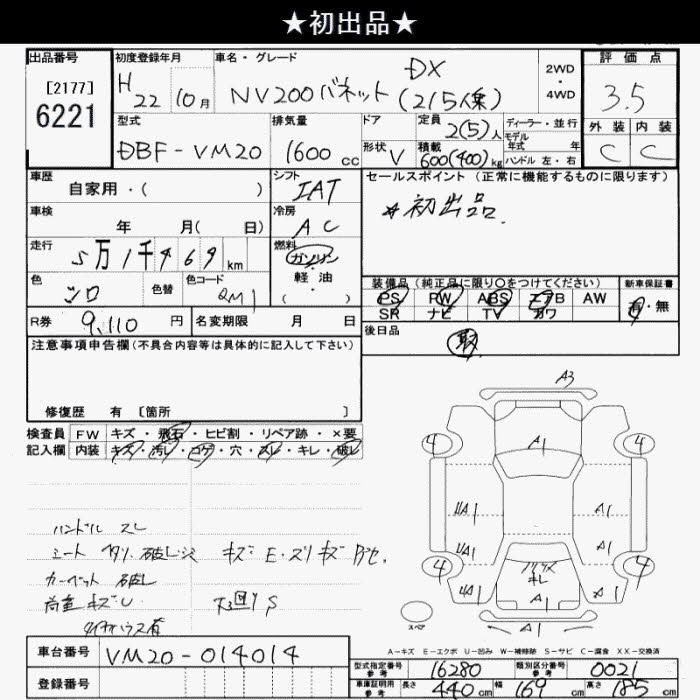 ★初出品★
出品番号
[2177]
6221
初度登録年月
H 22 10月
車名・グレード
DX
NV200バネット(2/5人乗)
2WD
・
4WD
評価点
3.5
外装 内装
C C
型式
DBF-VM20
排気量
1600 cc
ドア
形状 V
定員 2(5)人
積載 600(400)kg
ディーラー・並行
モデル
年式 年
ハンドル 左・右
車歴
自家用・( )
車検
年 月( 日)
走行
5万1千469km
色
シロ
色替
色コード
QM1
シフト
IAT
冷房
AC
燃料
ガソリン
・
軽油
( )
セールスポイント(正常に機能するものに限ります)
初出品
装備品(純正品に限り○をつけてください)
PS PW ABS エアB AW
SR ナビ TV カワ
新車保証書
有・無
後日品
取
R券 9,110円
名変期限 月 日
注意事項申告欄(不具合内容等は具体的に記入して下さい)
修復歴 有 [箇所 ]
検査員
記入欄
FW キズ・飛石・ヒビ割・リペア跡・×要
内装 キズ・汚レ・コゲ・穴・スレ・キレ・破レ
ハンドル スレ
シート ヘタリ 破レ・シミ キズ・E・ズリキズ
カーペット 破レ
荷室キズU 下回りS
タイヤハウス有
A3
4 4
A1
UA1 A1
UA1 A1
4 4
UA1 A1
キレ
A1
スペア
A-キズ E-エクボ U-凹み W-補修跡 S-サビ C-腐食 XX-交換済
車台番号 VM20-014014
登録番号
型式指定番号
参考
16280
類別区分番号
参考
0021
車庫証明用
参考
長さ 440cm 幅 169cm 高さ 185cm